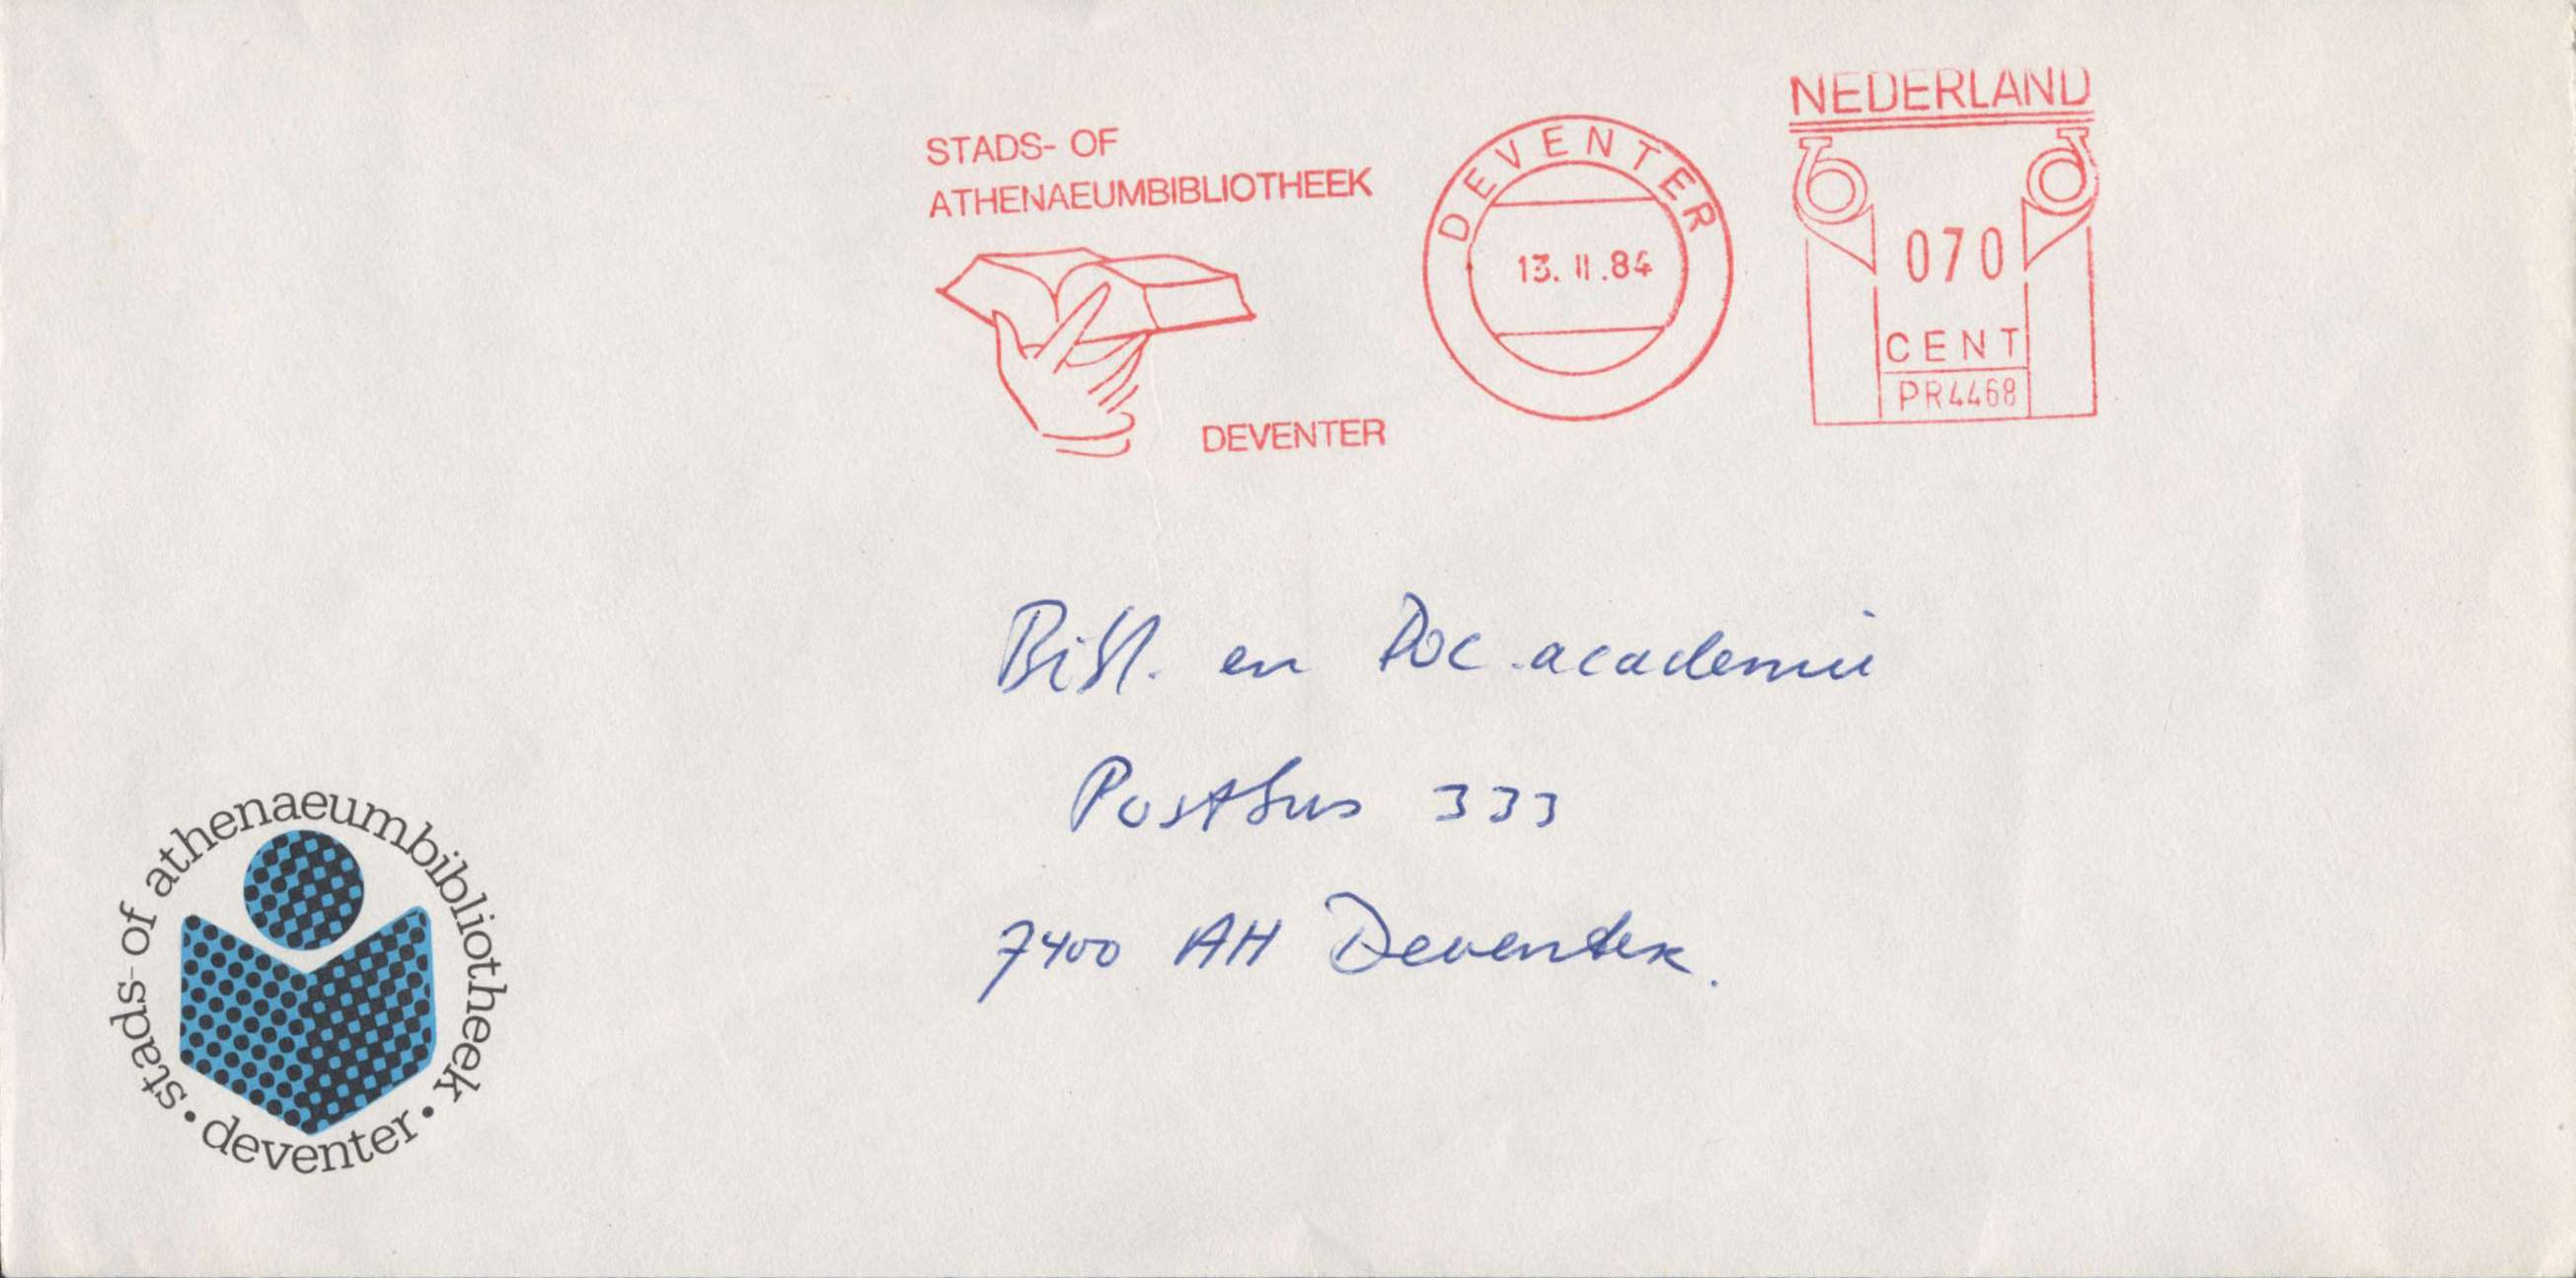 NEDERLAND
STADS- OF
ATHENAEUMBIBLIOTHEEK
DEVENTER
DEVENTER
13. II .84
070
CENT
PR4468
Bibl. en Doc. academie
Postbus 333
7400 AH Deventer.
stads- of athenaeumbibliotheek
• deventer •